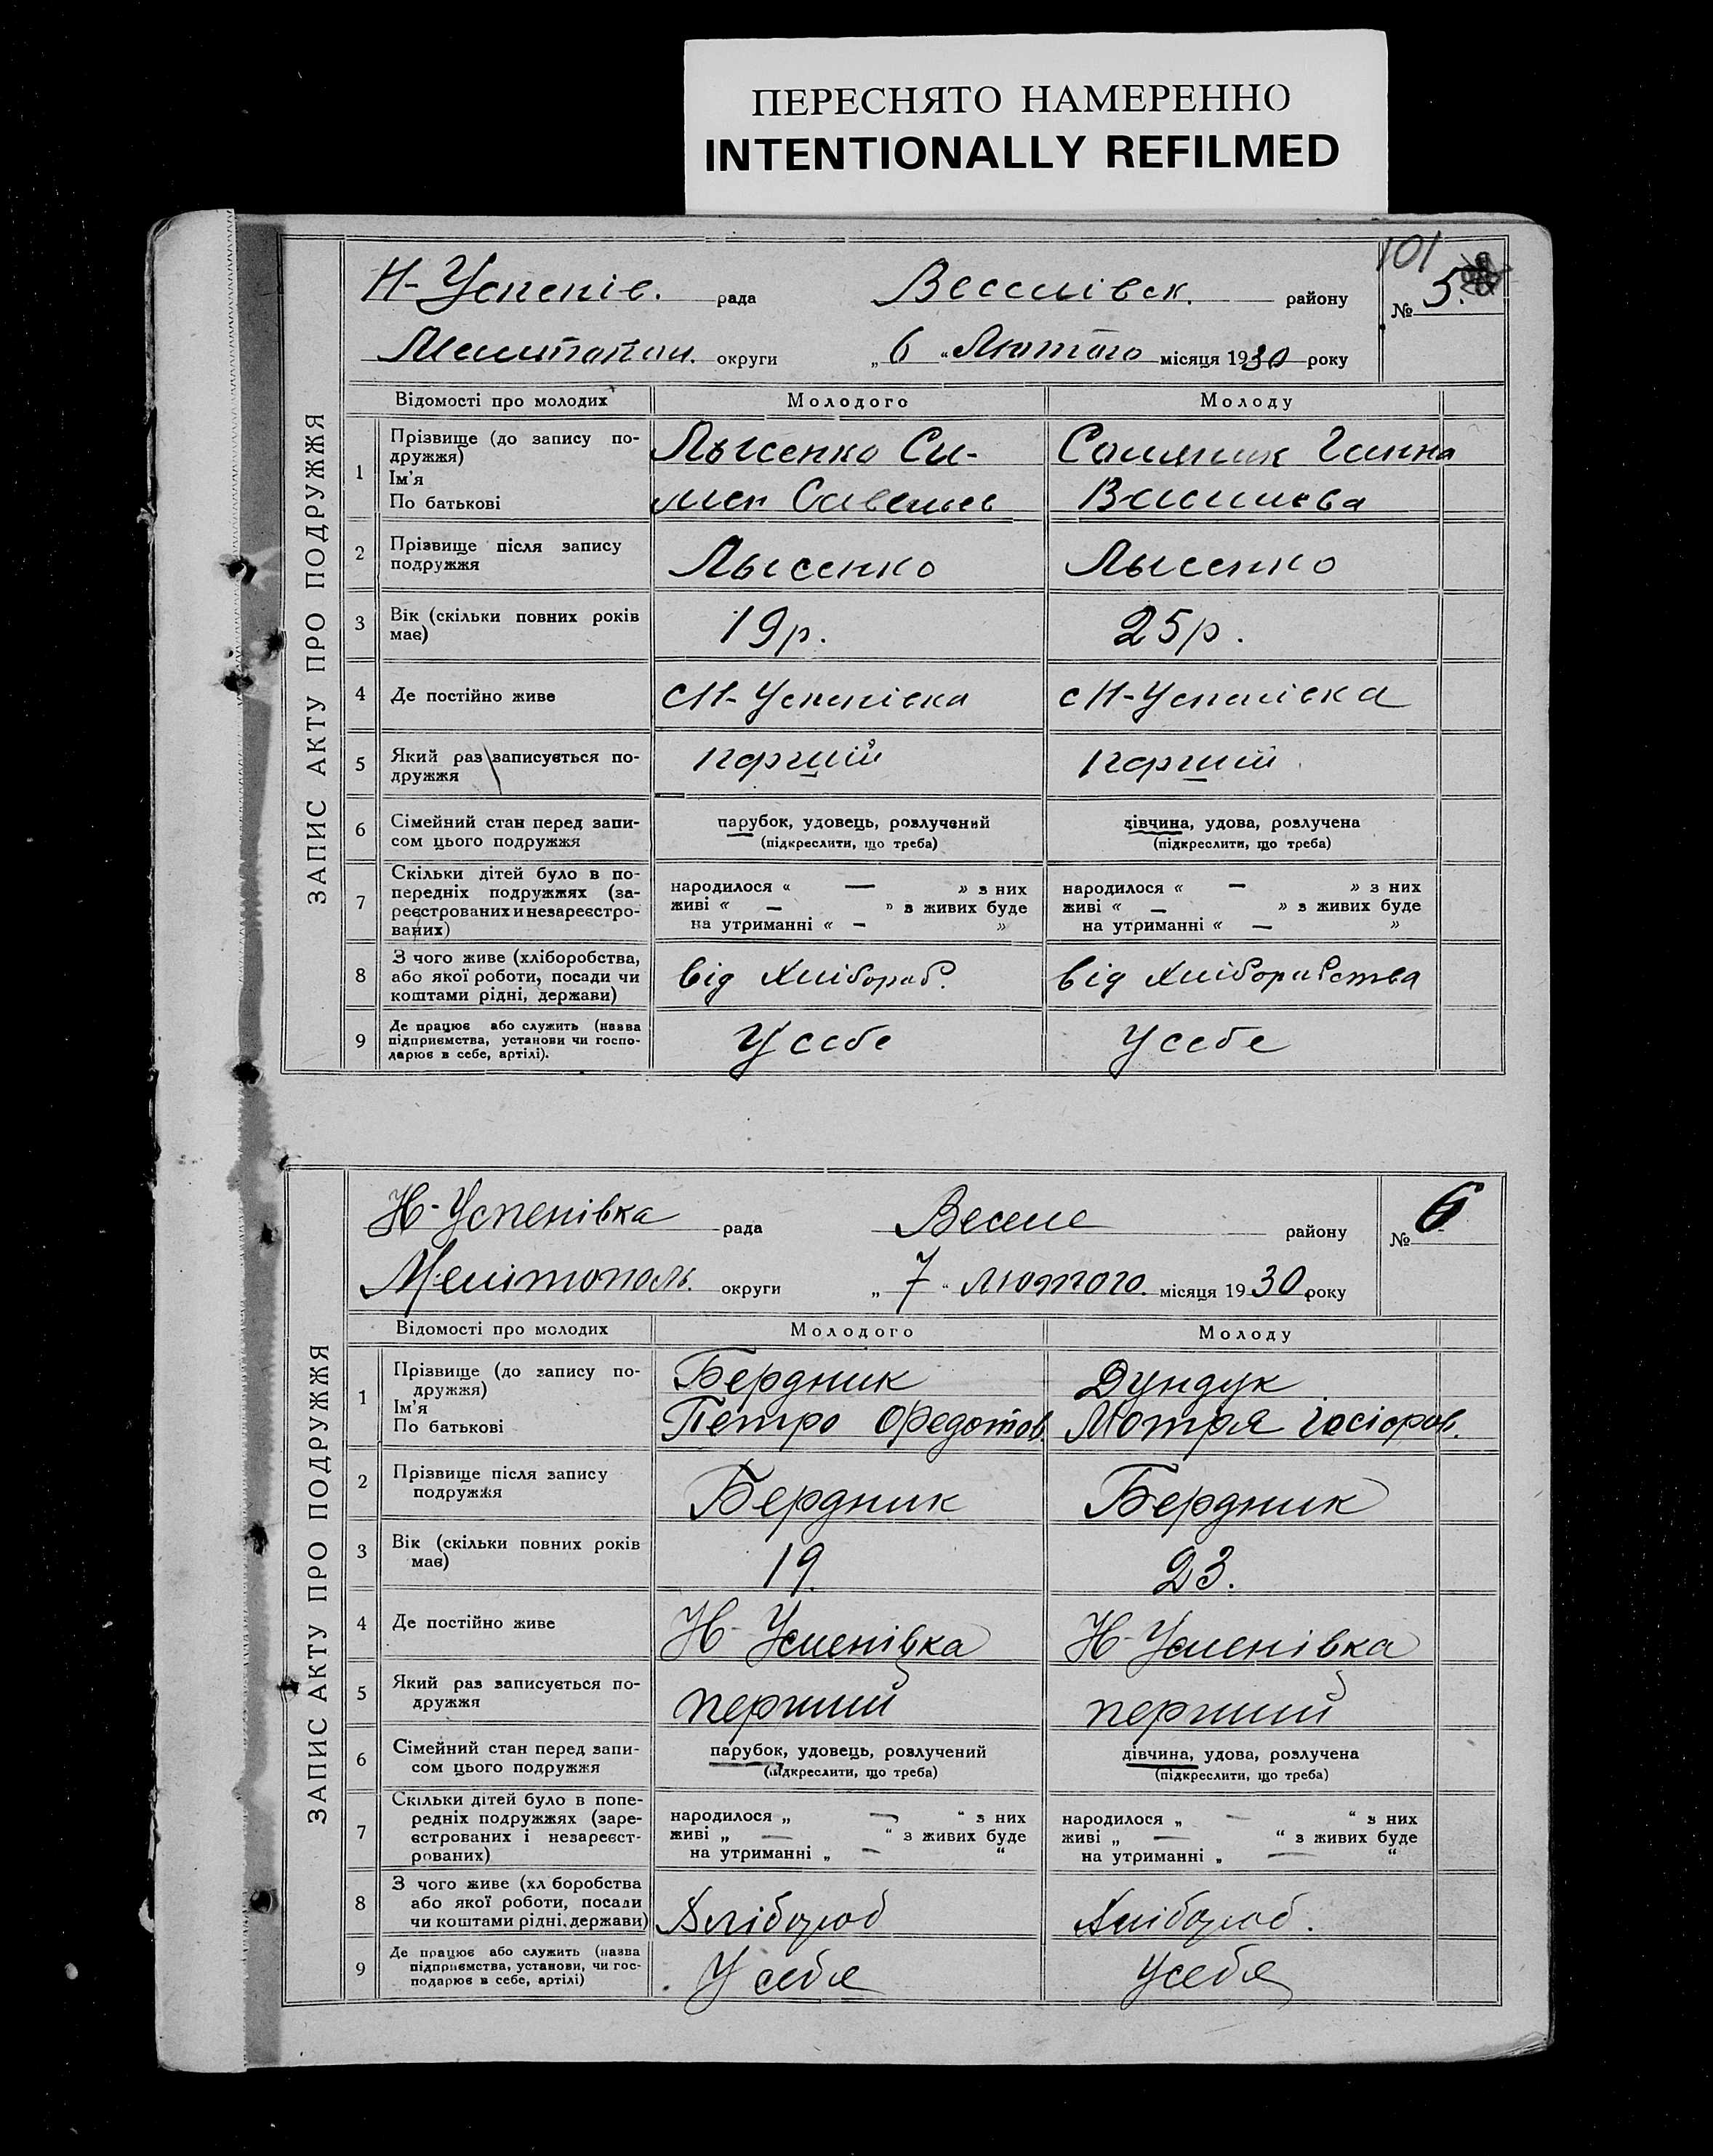 ПЕРЕСНЯТО НАМЕРЕННО
INTENTIONALLY REFILMED
101
ЗАПИС АКТУ ПРО ПОДРУЖЖЯ
Н-Успенів. рада Веселівск. району № 5.
округи „ 6 “ Лютого місяця 1930 року
Відомості про молодих Молодого Молоду
1 Прізвище (до запису подружжя) Ім'я По батькові
Лысенко Си-
мен Савельев
Ганна
Васильева
2 Прізвище після запису подружжя Лысенко Лысенко
3 Вік (скільки повних років має) 19р. 25р.
4 Де постійно живе с Н-Успенівка с Н-Успенівка
5 Який раз записується подружжя перший перший
6 Сімейний стан перед записом цього подружжя
парубок, удовець, розлучений дівчина, удова, розлучена
(підкреслити, що треба) (підкреслити, що треба)
7 Скільки дітей було в попередніх подружжях (зареєстрованих и незареєстрованих)
народилося « — » з них народилося « — » з них
живі « — » з живих буде живі « — » з живих буде
на утриманні « — » на утриманні « — »
8 З чого живе (хліборобства, або якої роботи, посади чи коштами рідні, держави) від Хлібороб. від Хліборобства
9 Де працює або служить (назва підприємства, установи чи господарює в себе, артілі). У себе У себе
ЗАПИС АКТУ ПРО ПОДРУЖЖЯ
Н-Успенівка рада Веселе району № 6
Мелітополь. округи „ 7 “ лютого місяця 1930 року
Відомості про молодих Молодого Молоду
1 Прізвище (до запису подружжя) Ім'я По батькові
Бердник Дундук
Петро Федотов. Мотря
2 Прізвище після запису подружжя Бердник Бердник
3 Вік (скільки повних років має) 19. 23.
4 Де постійно живе Н-Успенівка Н-Успенівка
5 Який раз записується подружжя перший перший
6 Сімейний стан перед записом цього подружжя
парубок, удовець, розлучений дівчина, удова, розлучена
(підкреслити, що треба) (підкреслити, що треба)
7 Скільки дітей було в попередніх подружжях (зареєстрованих і незареєстрованих)
народилося „ — “ з них народилося „ — “ з них
живі „ — “ з живих буде живі „ — “ з живих буде
на утриманні „ — “ на утриманні „ — “
8 З чого живе (хл боробства або якої роботи, посади чи коштами рідні, держави) Хлібороб Хлібороб.
9 Де працює або служить (назва підприємства, установи, чи господарює в себе, артілі) У себе У себе